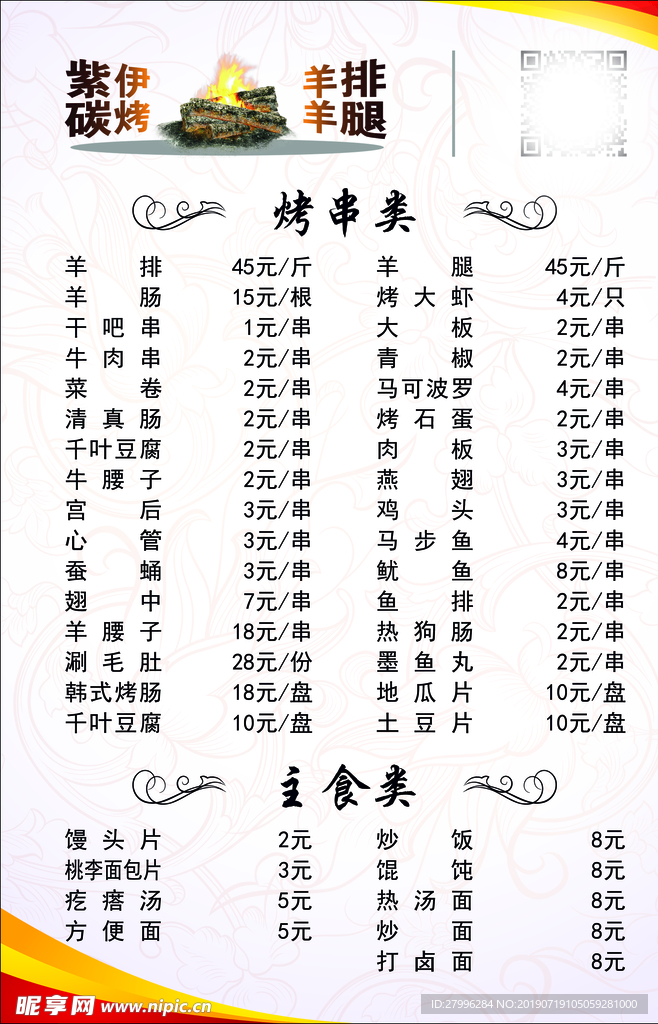 紫伊 羊排
碳烤 羊腿
烤串类
羊排 45元/斤 羊腿 45元/斤
羊肠 15元/根 烤大虾 4元/只
干吧串 1元/串 大板 2元/串
牛肉串 2元/串 青椒 2元/串
菜卷 2元/串 马可波罗 4元/串
清真肠 2元/串 烤石蛋 2元/串
千叶豆腐 2元/串 肉板 3元/串
牛腰子 2元/串 燕翅 3元/串
宫后 3元/串 鸡头 3元/串
心管 3元/串 马步鱼 4元/串
蚕蛹 3元/串 鱿鱼 8元/串
翅中 7元/串 鱼排 2元/串
羊腰子 18元/串 热狗肠 2元/串
涮毛肚 28元/份 墨鱼丸 2元/串
韩式烤肠 18元/盘 地瓜片 10元/盘
千叶豆腐 10元/盘 土豆片 10元/盘
主食类
馒头片 2元 炒饭 8元
桃李面包片 3元 馄饨 8元
疙瘩汤 5元 热汤面 8元
方便面 5元 炒面 8元
打卤面 8元
昵享网 www.nipic.cn ID:27996284 NO:20190719105059281000